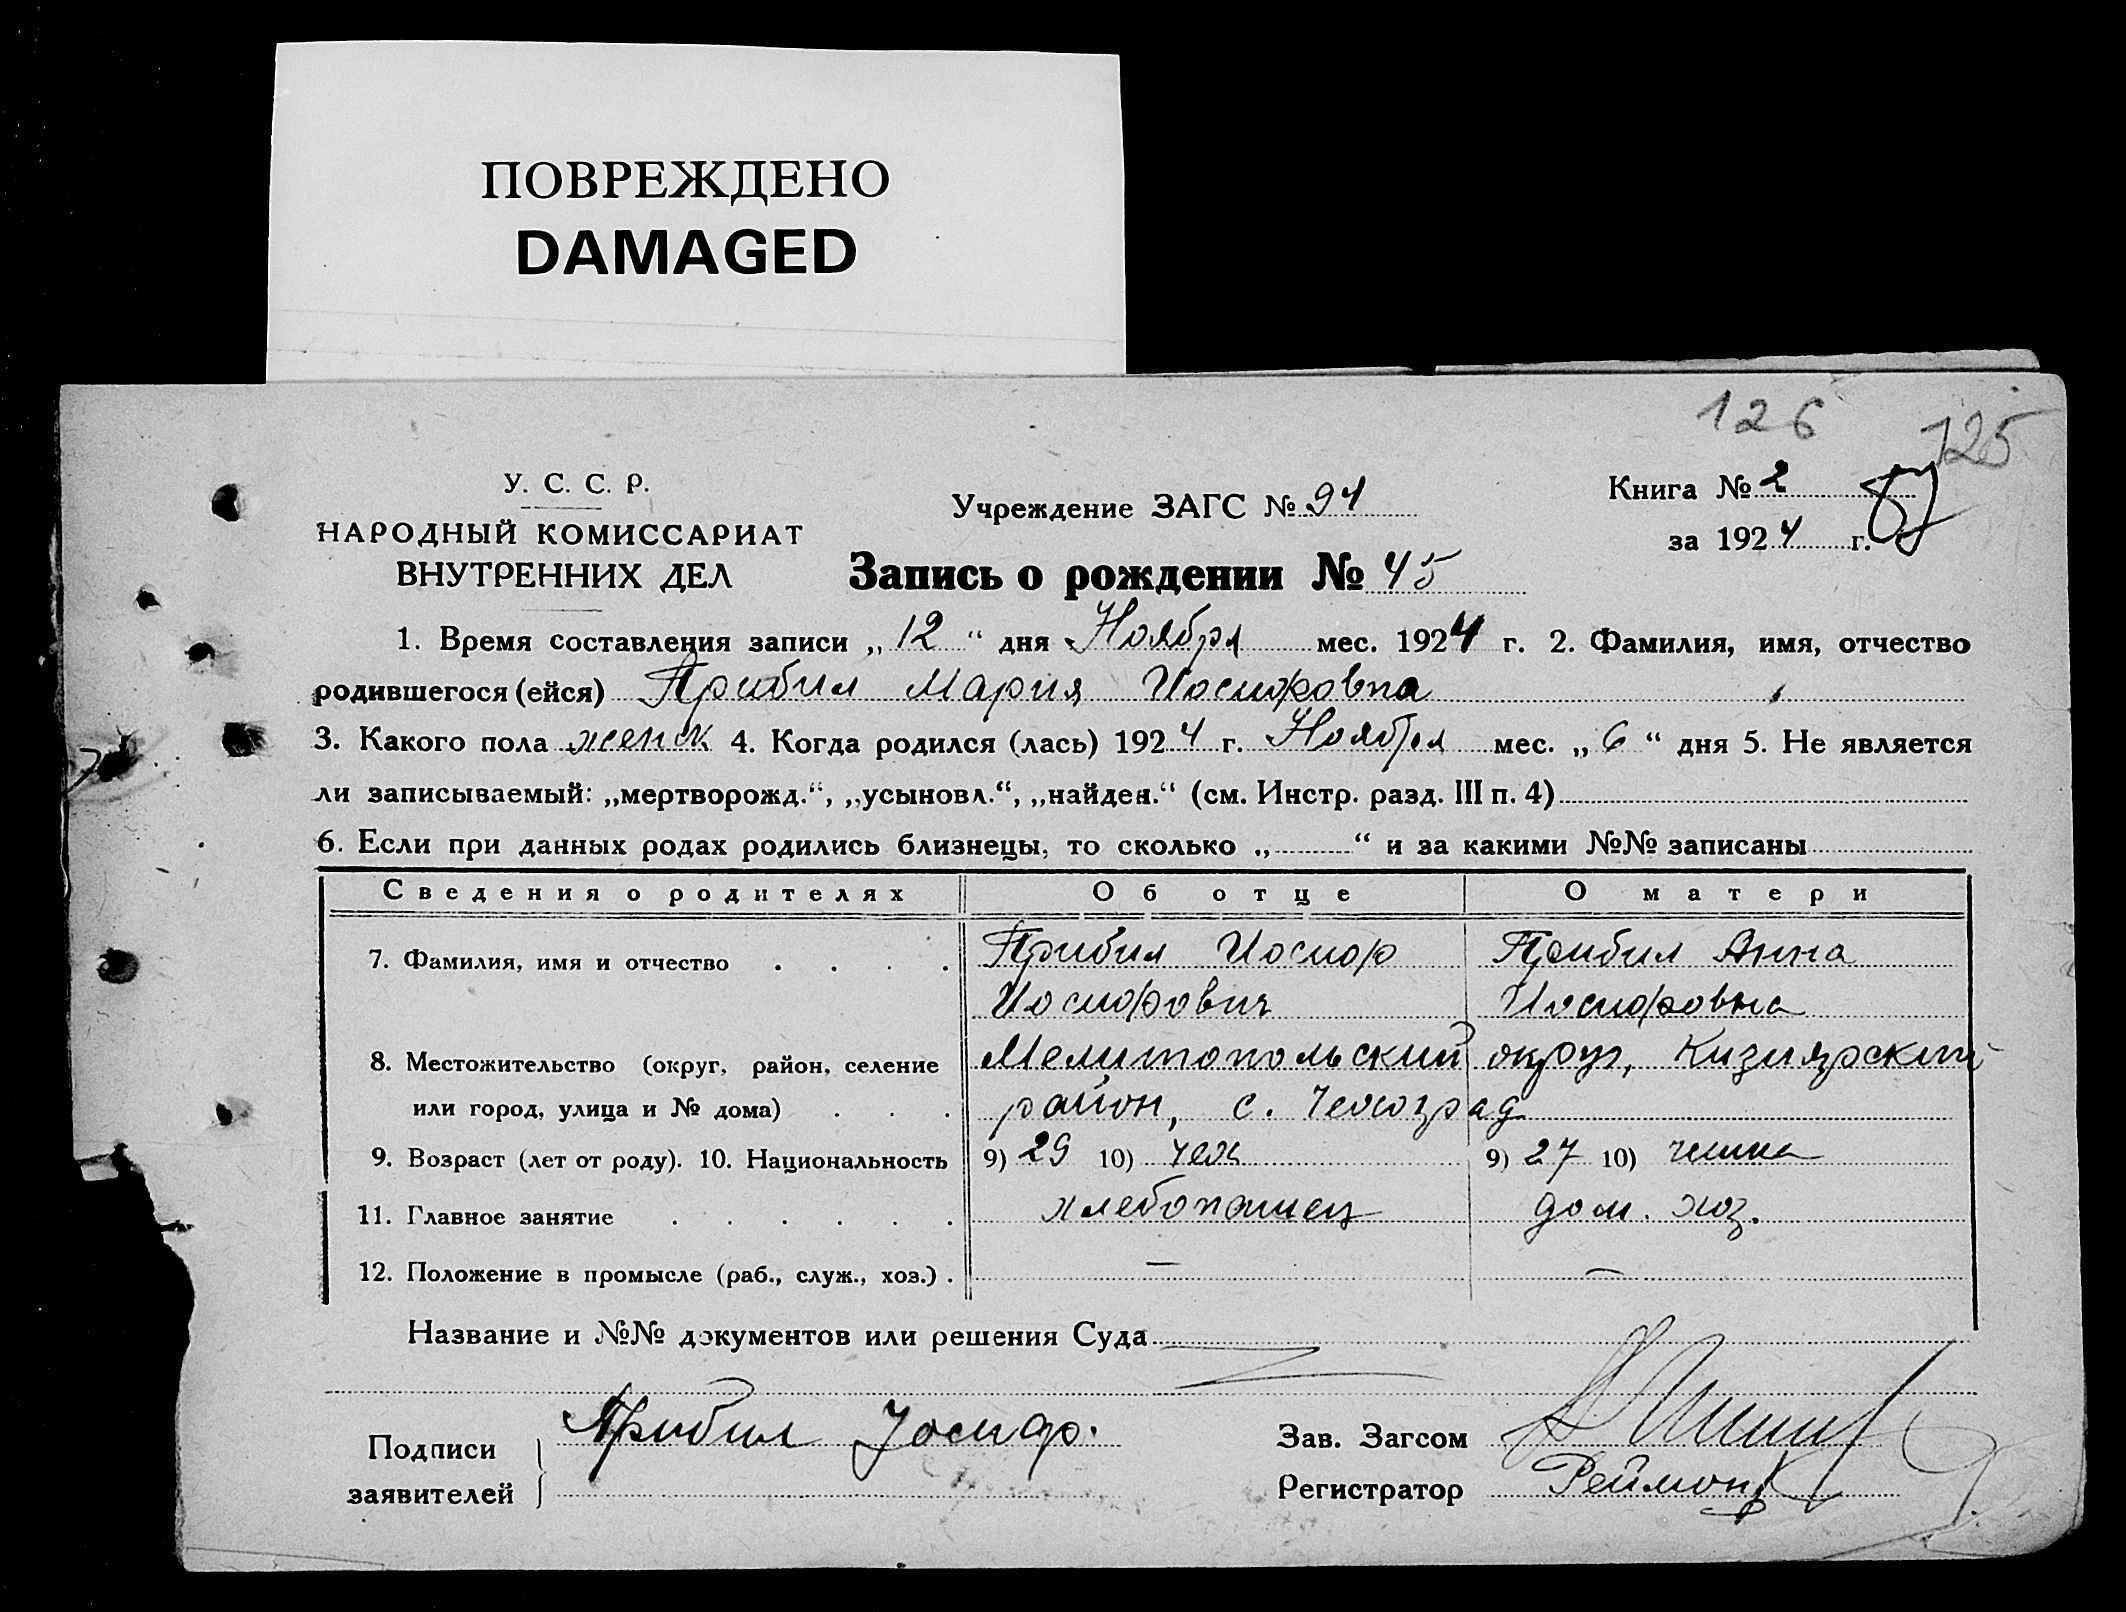 ПОВРЕЖДЕНО
DAMAGED
126 125
У. С. С. Р.
НАРОДНЫЙ КОМИССАРИАТ
ВНУТРЕННИХ ДЕЛ
Учреждение ЗАГС № 94
Книга № 2
за 1924 г.
Запись о рождении № 45
1. Время составления записи „12“ дня Ноября мес. 1924 г. 2. Фамилия, имя, отчество
родившегося (ейся) Прибил Мария Иосифовна
3. Какого пола женск 4. Когда родился (лась) 1924 г. Ноября мес. „6“ дня 5. Не является
ли записываемый: „мертворожд.“, „усыновл.“, „найден.“ (см. Инстр. разд. III п. 4)
6. Если при данных родах родились близнецы, то сколько „ “ и за какими №№ записаны
Сведения о родителях Об отце О матери
7. Фамилия, имя и отчество . . . . Прибил Иосиф Прибил Анна
Иосифович Иосифовна
8. Местожительство (округ, район, селение Мелитопольский округ, Кизиярский
или город, улица и № дома) . . . район, с. Чехоград
9. Возраст (лет от роду). 10. Национальность 9) 29 10) чех 9) 27 10) чешка
11. Главное занятие . . . . . . хлебопашец дом. хоз.
12. Положение в промысле (раб., служ., хоз.) . — —
Название и №№ документов или решения Суда
Подписи заявителей Прибил Иосиф.
Зав. Загсом
Регистратор